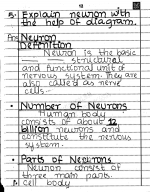 5. Explain neuron with
the help of diagram.
Ans Neuron
Definition
Neuron is the basic
structural
and functional unit of
nervous system. They are
also called as nerve
cells.
• Number of Neurons
Human body
consists of about 12
billion neurons and
constitute the nervous
system.
• Parts of Neurons
Neuron consists of
three main parts.
A. Cell body